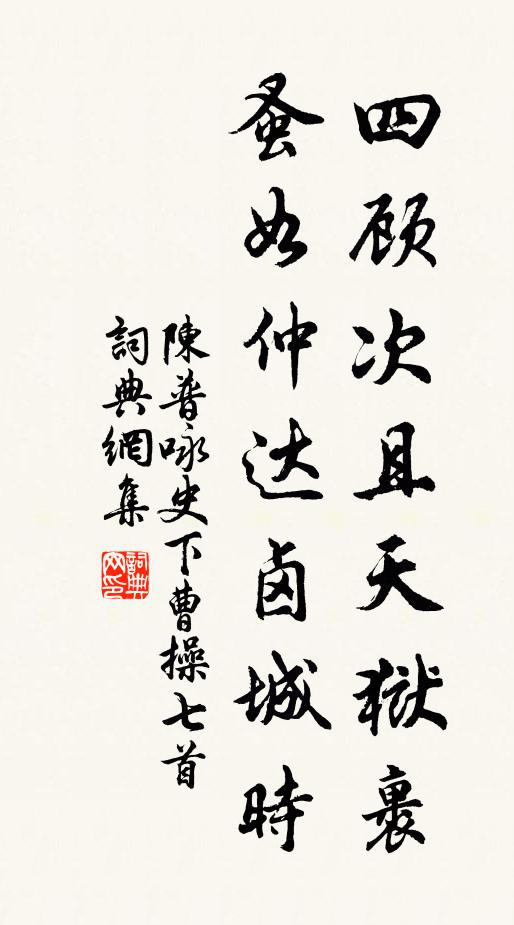 四顾次且天獄裏
蚤如仲达卤城時
陳普咏史下曹操七首
詞典網集
詞典网印